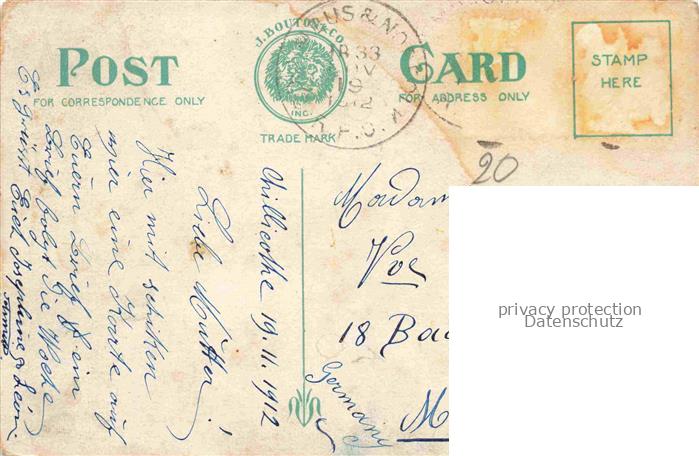 POST CARD
FOR CORRESPONDENCE ONLY
J. BOUTON & CO.
INC.
TRADE MARK
FOR ADDRESS ONLY
STAMP
HERE
US & NO
R.P.O.
20
Chillicothe 19.11.1912
Liebe Mutter!
Hier mit schiken
wir eine Karte auf
Euern Brief & ein
Brief folgt Die Woche
Es grüsst Euch Josephine & Léon
Madam
Voe
18 Ba
M
Germany
privacy protection
Datenschutz